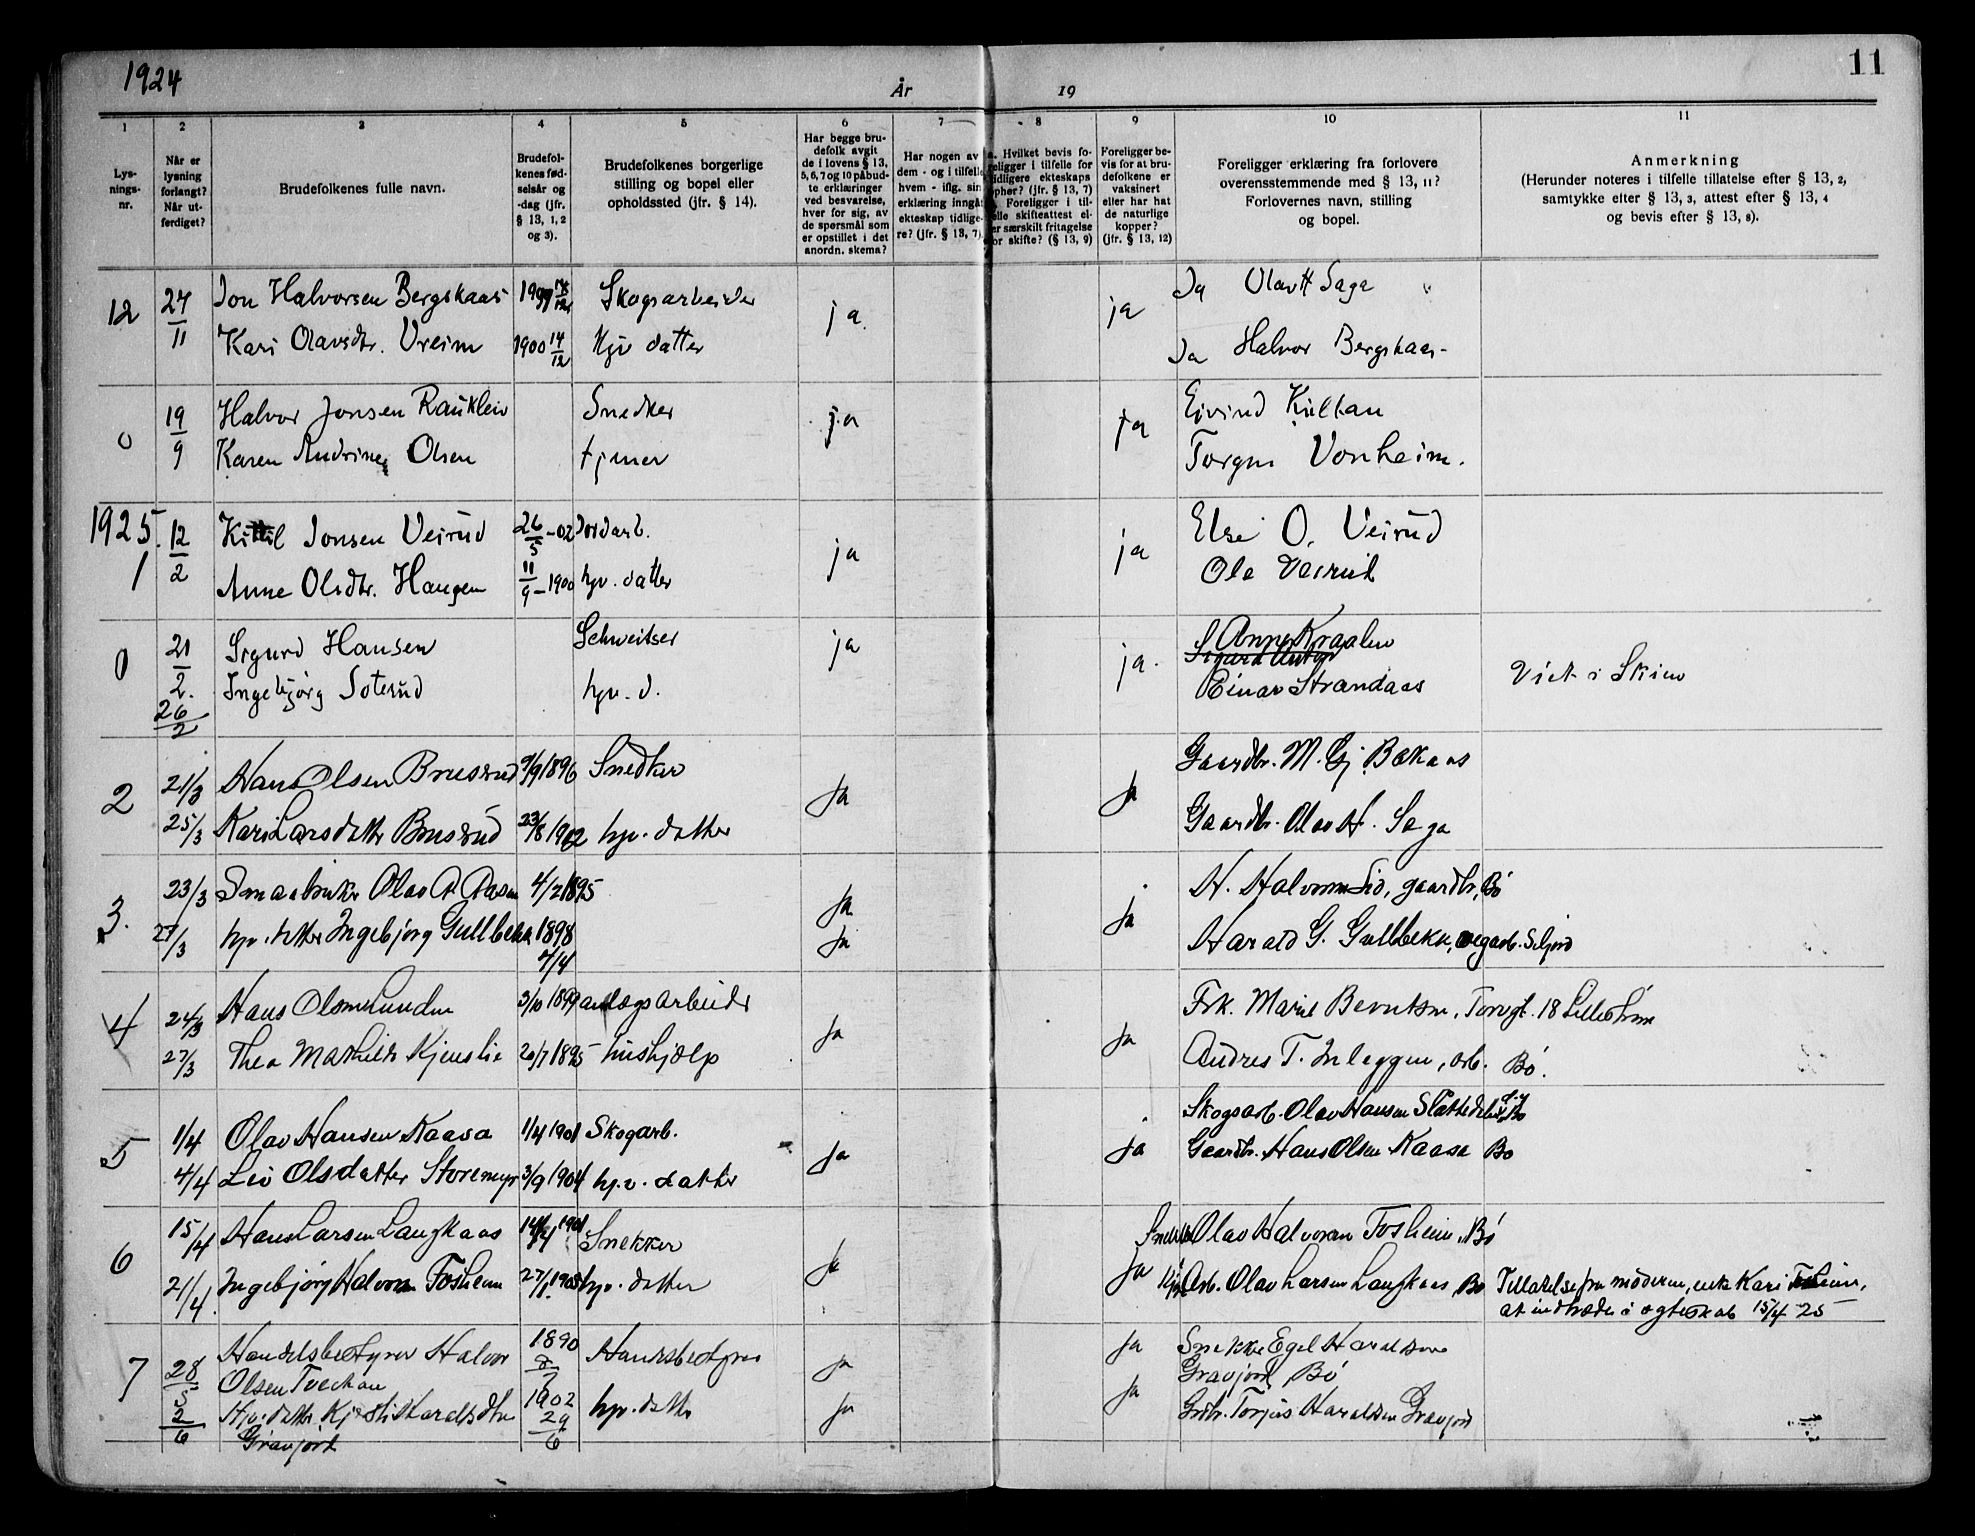 1924
År
19
11
1
2
3
4
5
6
7
8
9
10
11
Lys-
nings-
nr.
Når er
lysning
forlangt?
Når ut-
ferdiget?
Brudefolkenes fulle navn.
Brudefol-
kenes fød-
selsår og
-dag (jfr.
§ 13, 1, 2
og 3).
Brudefolkenes borgerlige
stilling og bopel eller
opholdssted (jfr. § 14).
Har begge bru-
defolk avgit
de i lovens § 13,
5, 6, 7 og 10 påbud-
te erklæringer
ved besvarelse,
hver for sig, av
de spørsmål som
er opstillet i det
anordn. skema?
Har nogen av
dem - og i tilfelle
hvem - iflg. sin
erklæring inngåt
ekteskap tidlige-
re? (jfr. § 13, 7)
a. Hvilket bevis fo-
religger i tilfelle for
tidligere ekteskaps
opher? (jfr. § 13, 7)
Foreligger i til-
elle skifteattest el-
er særskilt fritagelse
or skifte? (§ 13, 9)
Foreligger be-
vis for at bru-
defolkene er
vaksinert
eller har hat
de naturlige
kopper?
(jfr. § 13, 12)
Foreligger erklæring fra forlovere
overensstemmende med § 13, 11?
Forlovernes navn, stilling
og bopel.
Anmerkning
(Herunder noteres i tilfelle tillatelse efter § 13, 2,
samtykke efter § 13, 3, attest efter § 13, 4
og bevis efter § 13, 8).
12 24/11 Jon Halvorsen Bergskaas Skogsarbeider ja ja Ja Olav H Saga
Kari Olavsdtr. Vreim 1900 14/12 Hjv datter Ja Halvor Bergskaas
0 19/9 Halvor Jonsen Rauklein Snedker ja ja Eivind
Karen Andrine Olsen tjener Vonheim.
1925.
1 12/2 Kittil Jonsen Veirud 26/5-02 Jordarb. ja ja Else O. Veirud
Anne Olsdtr. Haugen 11/9-1900 hjv. datter Ole Veirud
0 21/2. Sigurd Hansen Schweitser ja ja. Anne Kraalen
26/2 Ingebjørg Soterud hjv. d. Einar Strandaas Viet i Skien
2 21/3 Hans Olsen Brusrud 9/9 1896 Snedker Ja Ja Gaardbr. M. Gj. Bækaas
25/3 Kari Larsdatter Brusrud 23/8 1902 hjv. datter Gaardbr. Olav H. Saga
3. 23/3 Smaabruker Olav A. Aasen 4/2 1895 Ja Ja H. Halvorsen Lid, gaardbr, Bø
27/3 hjv. datter Ingebjørg Gullbekk 1898 7/4 Ja Harald G. Gullbekk, vegarb. Seljord
4 24/3 Hans Olsen Lunden 3/10 1899 anlægsarbeider Ja Ja Frk. Marie Berntsen, Torvgt. 18 Lillestrøm
27/3 Thea Mathilde Kjenslie 20/7 1895 hushjælp Andres T. Inleggen, arb. Bø.
5 1/4 Olav Hansen Kaasa 1/4 1901 Skogarb. Ja Ja Skogsarb. Olav Hansen
4/4 Liv Olsdatter Storemyr 3/9 1904 hjv. datter Gaardbr. Hans Olsen Kaasa Bø
6 15/4 Hans Larsen Langkaas 1901 Snekker Ja Ja Olav Halvorsen Fosheim, Bø
21/4. Ingebjørg Halvorsen Fosheim 27/1 1905 hjv. datter Arb. Olav Larsen Langkaas, Bø Tillatelse fra moderen, enke Kari Fosheim,
at indtræde i ægteskab 15/4 25
7 28/5 Handelsbestyrer Halvor 1890 Handelsbestyrer Ja Ja Snekker Egel Haraldsen
Olsen Tveitan Gravjord, Bø
2/6 Hjv. datter Kjersti Haraldsdtr 1902 29/6 hjv. datter Ja Ja Grdbr. Torjus Haraldsen Gravjord
Gravjord